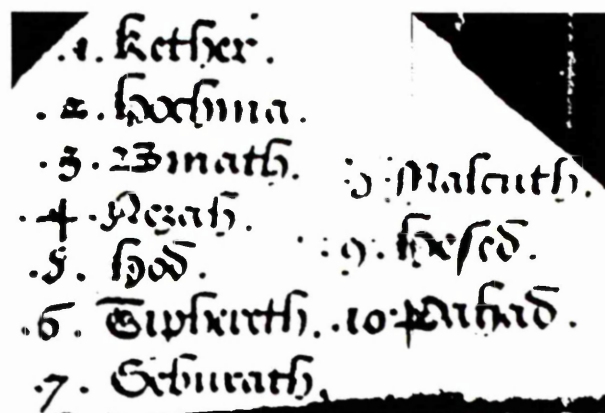 .1. Kether.
.2. Hochma.
.3. Binath.
.4. Nezah.
.5. Hod.
.6. Tiphereth.
.7. Geburath.
Malcuth.
.9. Hesed.
.10. Pahad.